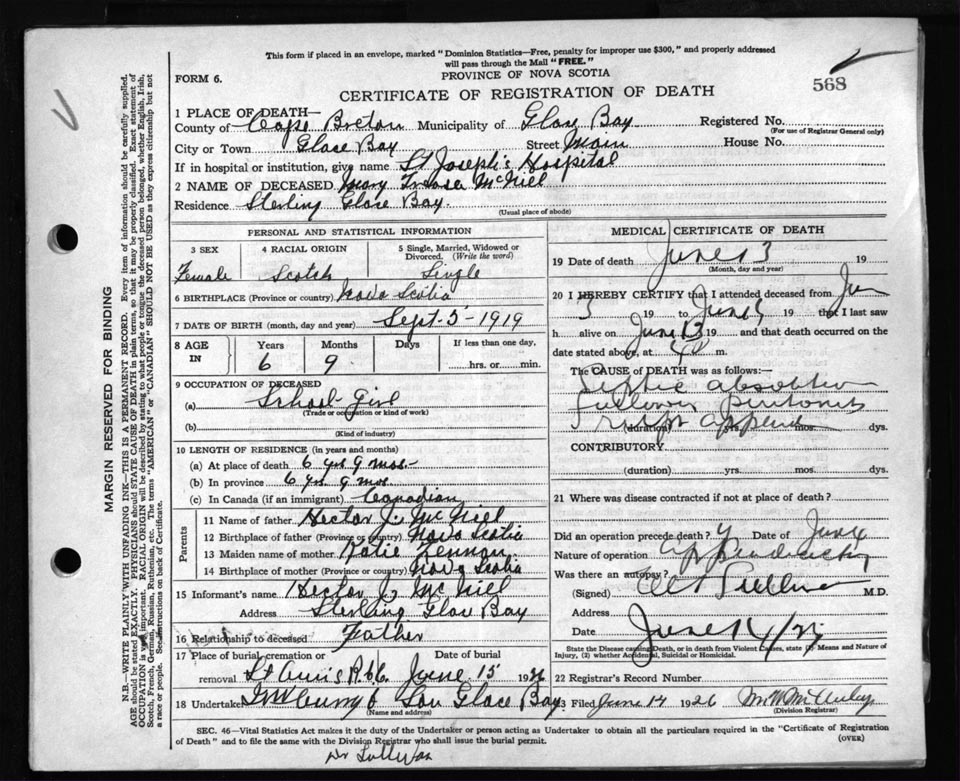 This form if placed in an envelope, marked "Dominion Statistics—Free, penalty for improper use $300," and properly addressed
will pass through the Mail "FREE."
FORM 6.
PROVINCE OF NOVA SCOTIA
568
CERTIFICATE OF REGISTRATION OF DEATH
1 PLACE OF DEATH—
County of Cape Breton Municipality of Glace Bay Registered No.
(For use of Registrar General only)
City or Town Glace Bay Street Main House No.
If in hospital or institution, give name St Joseph's Hospital
2 NAME OF DECEASED Mary McNiel
Residence Sterling Glace Bay
(Usual place of abode)
PERSONAL AND STATISTICAL INFORMATION
3 SEX 4 RACIAL ORIGIN 5 Single, Married, Widowed or
Divorced. (Write the word)
Female Scotch Single
6 BIRTHPLACE (Province or country) Nova Scotia
7 DATE OF BIRTH (month, day and year) Sept-5-1919
8 AGE IN Years Months Days If less than one day,
6 9 hrs. or min.
9 OCCUPATION OF DECEASED
(a) School-Girl
(Trade or occupation or kind of work)
(b)
(Kind of industry)
10 LENGTH OF RESIDENCE (in years and months)
(a) At place of death 6 yrs 9 mos-
(b) In province 6 yrs 9 mos.
(c) In Canada (if an immigrant) Canadian
Parents
11 Name of father Hector J. McNiel
12 Birthplace of father (Province or country) Nova Scotia
13 Maiden name of mother Katie Lennon
14 Birthplace of mother (Province or country) Nova Scotia
15 Informant's name Hector J. McNiel
Address Sterling Glace Bay
16 Relationship to deceased Father
17 Place of burial, cremation or Date of burial
removal St Anns June 15 1926
18 Undertaker Son Glace Bay
(Name and address)
MEDICAL CERTIFICATE OF DEATH
19 Date of death June 13 19
(Month, day and year)
20 I HEREBY CERTIFY that I attended deceased from Jun
19 to June 19 that I last saw
h alive on June 13 19 and that death occurred on
date stated above, at m.
The CAUSE of DEATH was as follows:—
Septic absorption
following Peritonitis
(duration) yrs. mos. dys.
CONTRIBUTORY
(duration) yrs. mos. dys.
21 Where was disease contracted if not at place of death?
Did an operation precede death? y Date of June
Nature of operation
Was there an autopsy?
(Signed) M.D.
Address
Date June 14/26
State the Disease causing Death, or in death from Violent Causes, state (1) Means and Nature of
Injury, (2) whether Accidental, Suicidal or Homicidal.
22 Registrar's Record Number
23 Filed June 14 1926
(Division Registrar)
SEC. 46—Vital Statistics Act makes it the duty of the Undertaker or person acting as Undertaker to obtain all the particulars required in the "Certificate of Registration
of Death" and to file the same with the Division Registrar who shall issue the burial permit. (OVER)
Dr Sullivan
MARGIN RESERVED FOR BINDING
N.B.—WRITE PLAINLY WITH UNFADING INK—THIS IS A PERMANENT RECORD. Every item of information should be carefully supplied.
AGE should be stated EXACTLY. PHYSICIANS should STATE CAUSE OF DEATH in plain terms, so that it may be properly classified. Exact statement of
OCCUPATION is very important. RACIAL ORIGIN will be described by stating to what people or tongue the deceased person belonged, whether English, Irish,
Scotch, French, German, Russian, Ruthenian, etc. The terms "AMERICAN" or "CANADIAN" SHOULD NOT BE USED as they express citizenship but not
a race or people. See instructions on back of Certificate.